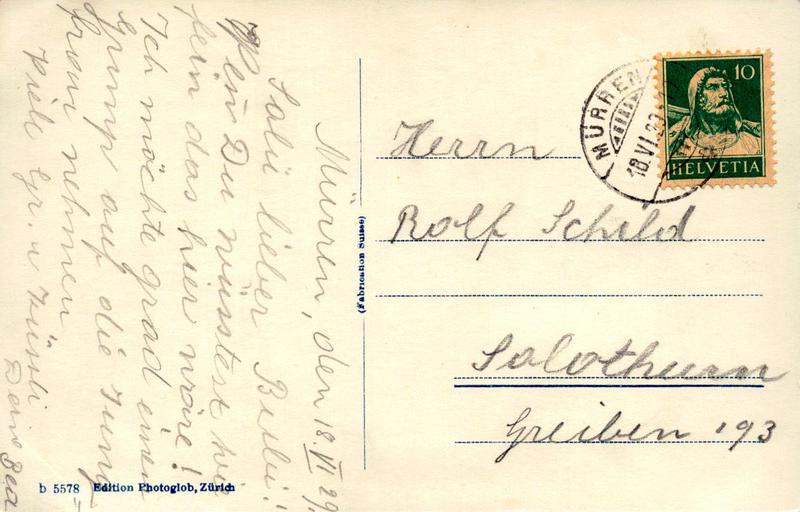 Mürren, den 18. VI. 29.
Salü lieber Bubi!
Wen Du wüsstest wie
fein das hier wäre!
Ich möchte grad einen
Gump auf die Jung
frau nehmen
Viele Gr. u Züssli
Deine Bea
b 5578 Edition Photoglob, Zürich
(Fabrication Suisse)
MÜRREN
18.VI.29
10
HELVETIA
Herrn
Rolf Schild
Solothurn
Greiben 193